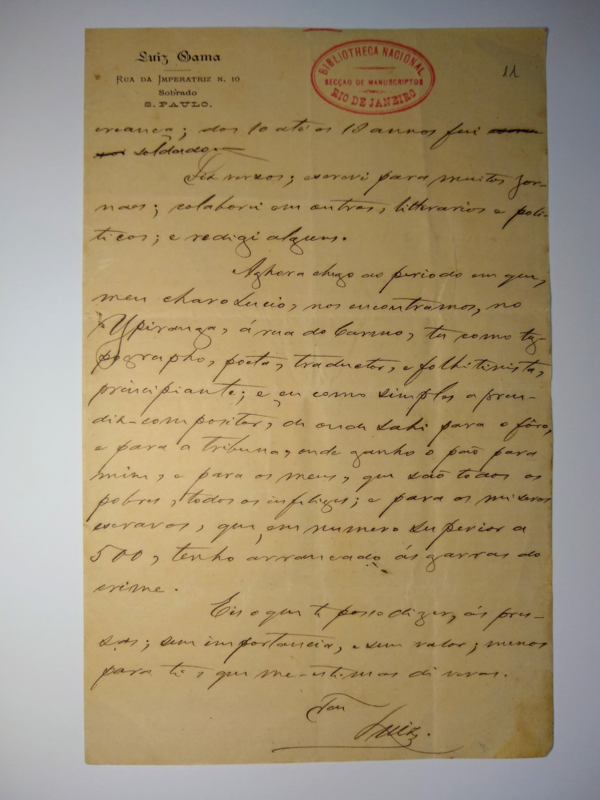 Luiz Gama
RUA DA IMPERATRIZ N. 10
Sobrado
S. PAULO.
BIBLIOTHECA NACIONAL
SECÇÃO DE MANUSCRIPTOS
RIO DE JANEIRO
11
creança; dos 10 até os 18 annos fui
soldado.
Fiz versos; escrevi para muitos jor-
naes; colaborei em outros, litterarios e poli-
ticos; e redigi alguns.
Aghora chego ao periodo em que,
meu charo Lucio, nos encontramos, no
"Ypiranga", á rua do Carmo, tu como ty-
pographo, poeta, traductor, e folhitinista,
principiante; e eu como simples apren-
diz-compositor, de onde sahi para o fôro,
e para a tribuna, onde ganho o pão para
mim, e para os meus, que são todos os
pobres, todos os infelizes; e para os miseros
escravos, que, em numero superior a
500, tenho arrancado ás garras do
crime.
Eis o que te posso dizer, ás pres-
sas; sem importancia, e sem valor; menos
para ti, que me estimas de veras.
Teu
Luiz.